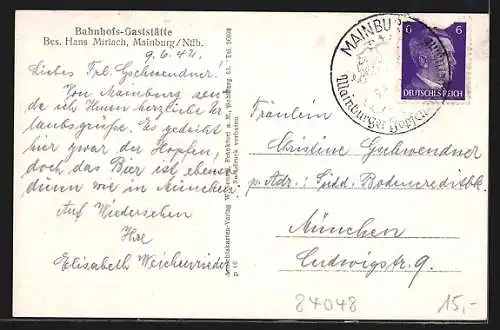 Bahnhofs-Gaststätte
Bes. Hans Mirlach, Mainburg/Ndb.
9.6.42.
Liebes Frl. Gschwendner!
Von Mainburg sen-
de ich Ihnen herzliche Ur-
laubsgrüße. Es gedeiht
hier zwar der Hopfen,
doch das Bier ist ebenso
dünn wie in München.
Auf Wiedersehen
Ihre
Elisabeth Weichenrieder
Ansichtskarten-Verlag
Frankfurt a. M.
Nachdruck verboten
p 16
MAINBURG
Mainburger Hopfen
6 6
DEUTSCHES REICH
Fräulein
Christine Gschwendner
p. Adr.: Südd. Bodencreditbk.
München
Ludwigstr. 9.
84048
15,-